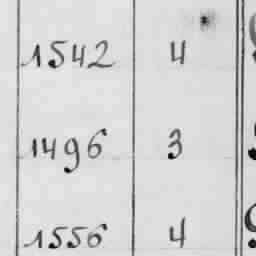 1542 4
1496 3
1556 4